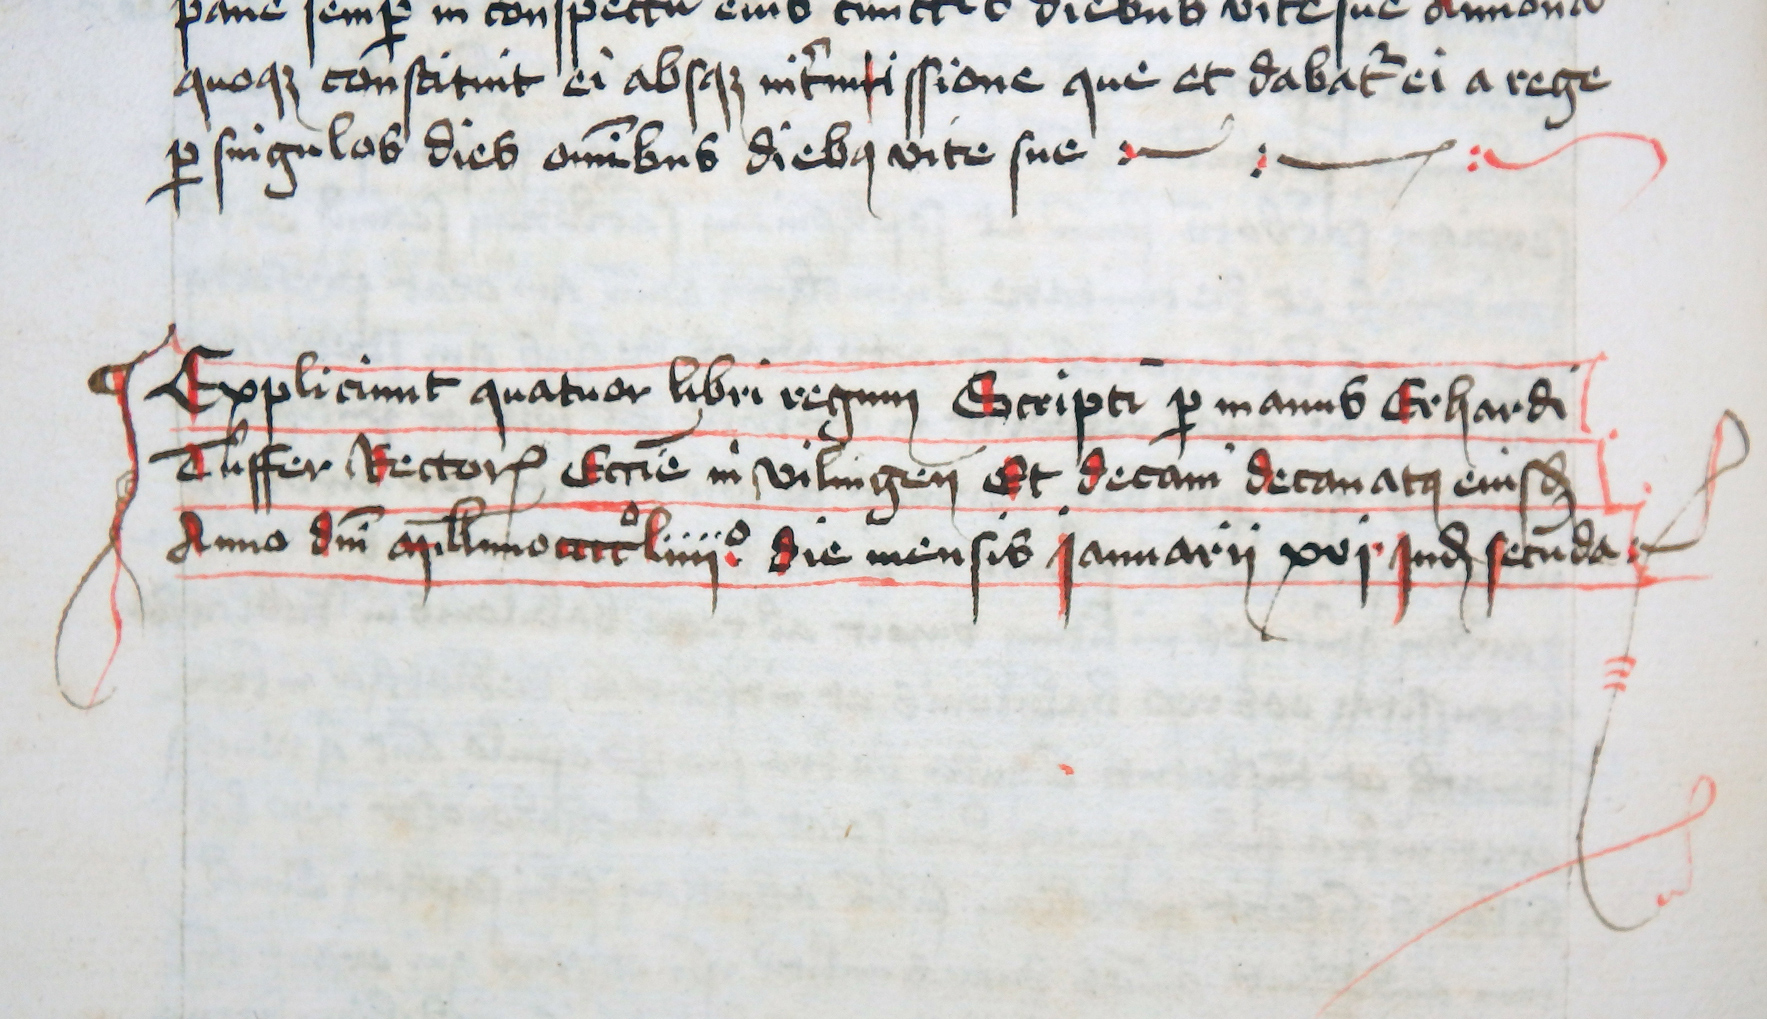 pane semꝑ in conspectu eius cunctis diebus vite sue Annona
quoqꝫ constituit ei absqꝫ int̄missione que et dabat᷑ ei a rege
ꝑ singulos dies om̄ibus diebꝯ vite sue
Expliciunt quatuor libri regum Scripti ꝑ manus Erhardi
Tuͤffer Rectorꝭ Eccīe in vilingen̄ Et decani decanatꝯ eiusđ
Anno dn̄i mill̄imo cccc° liiii° die mensis Januarii xvj Jnđ secūda